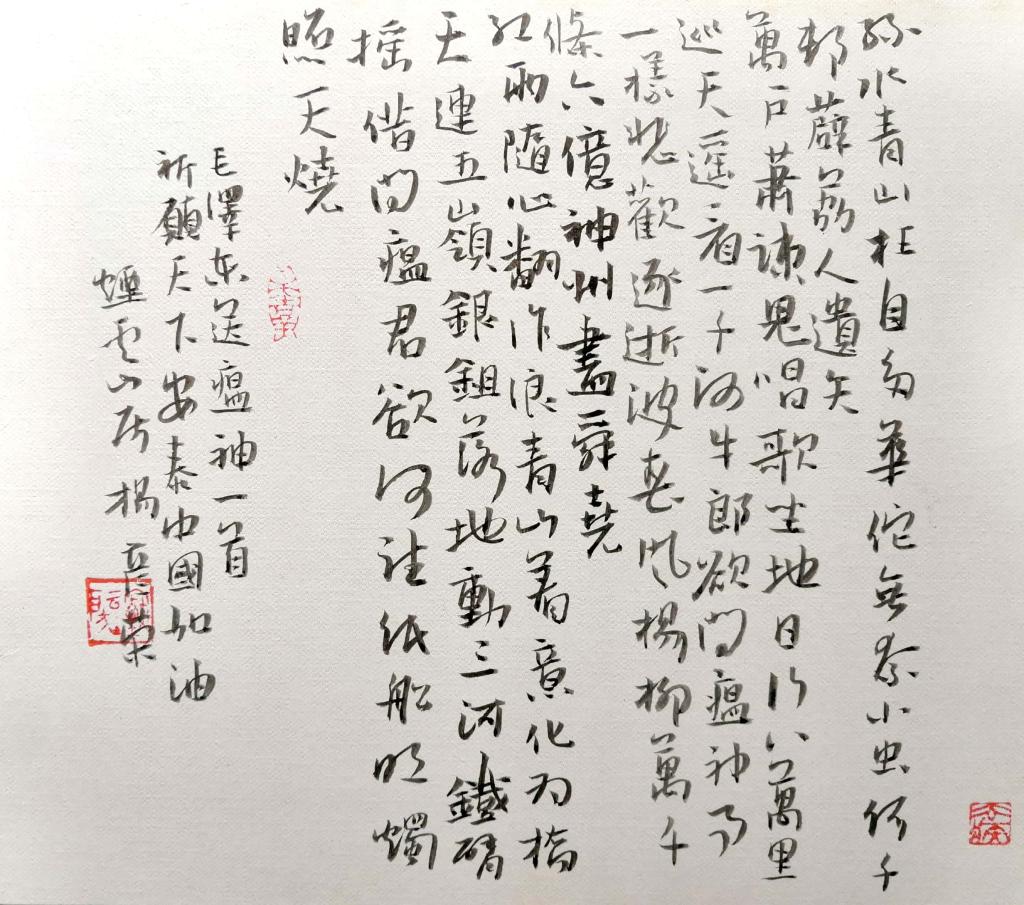 綠水青山枉自多華佗無奈小虫何千
村薜荔人遺矢
萬户蕭疎鬼唱歌坐地日行八萬里
巡天遥看一千河牛郎欲問瘟神事
一樣悲歡逐逝波春風楊柳萬千
條六億神州盡舜堯
红雨隨心翻作浪青山着意化为橋
天連五嶺銀鉏落地動三河鐵臂
摇借問瘟君欲何往纸船明燭
照天燒
毛澤东送瘟神一首
祈願天下安泰中國加油
煙雲山居楊彦荣